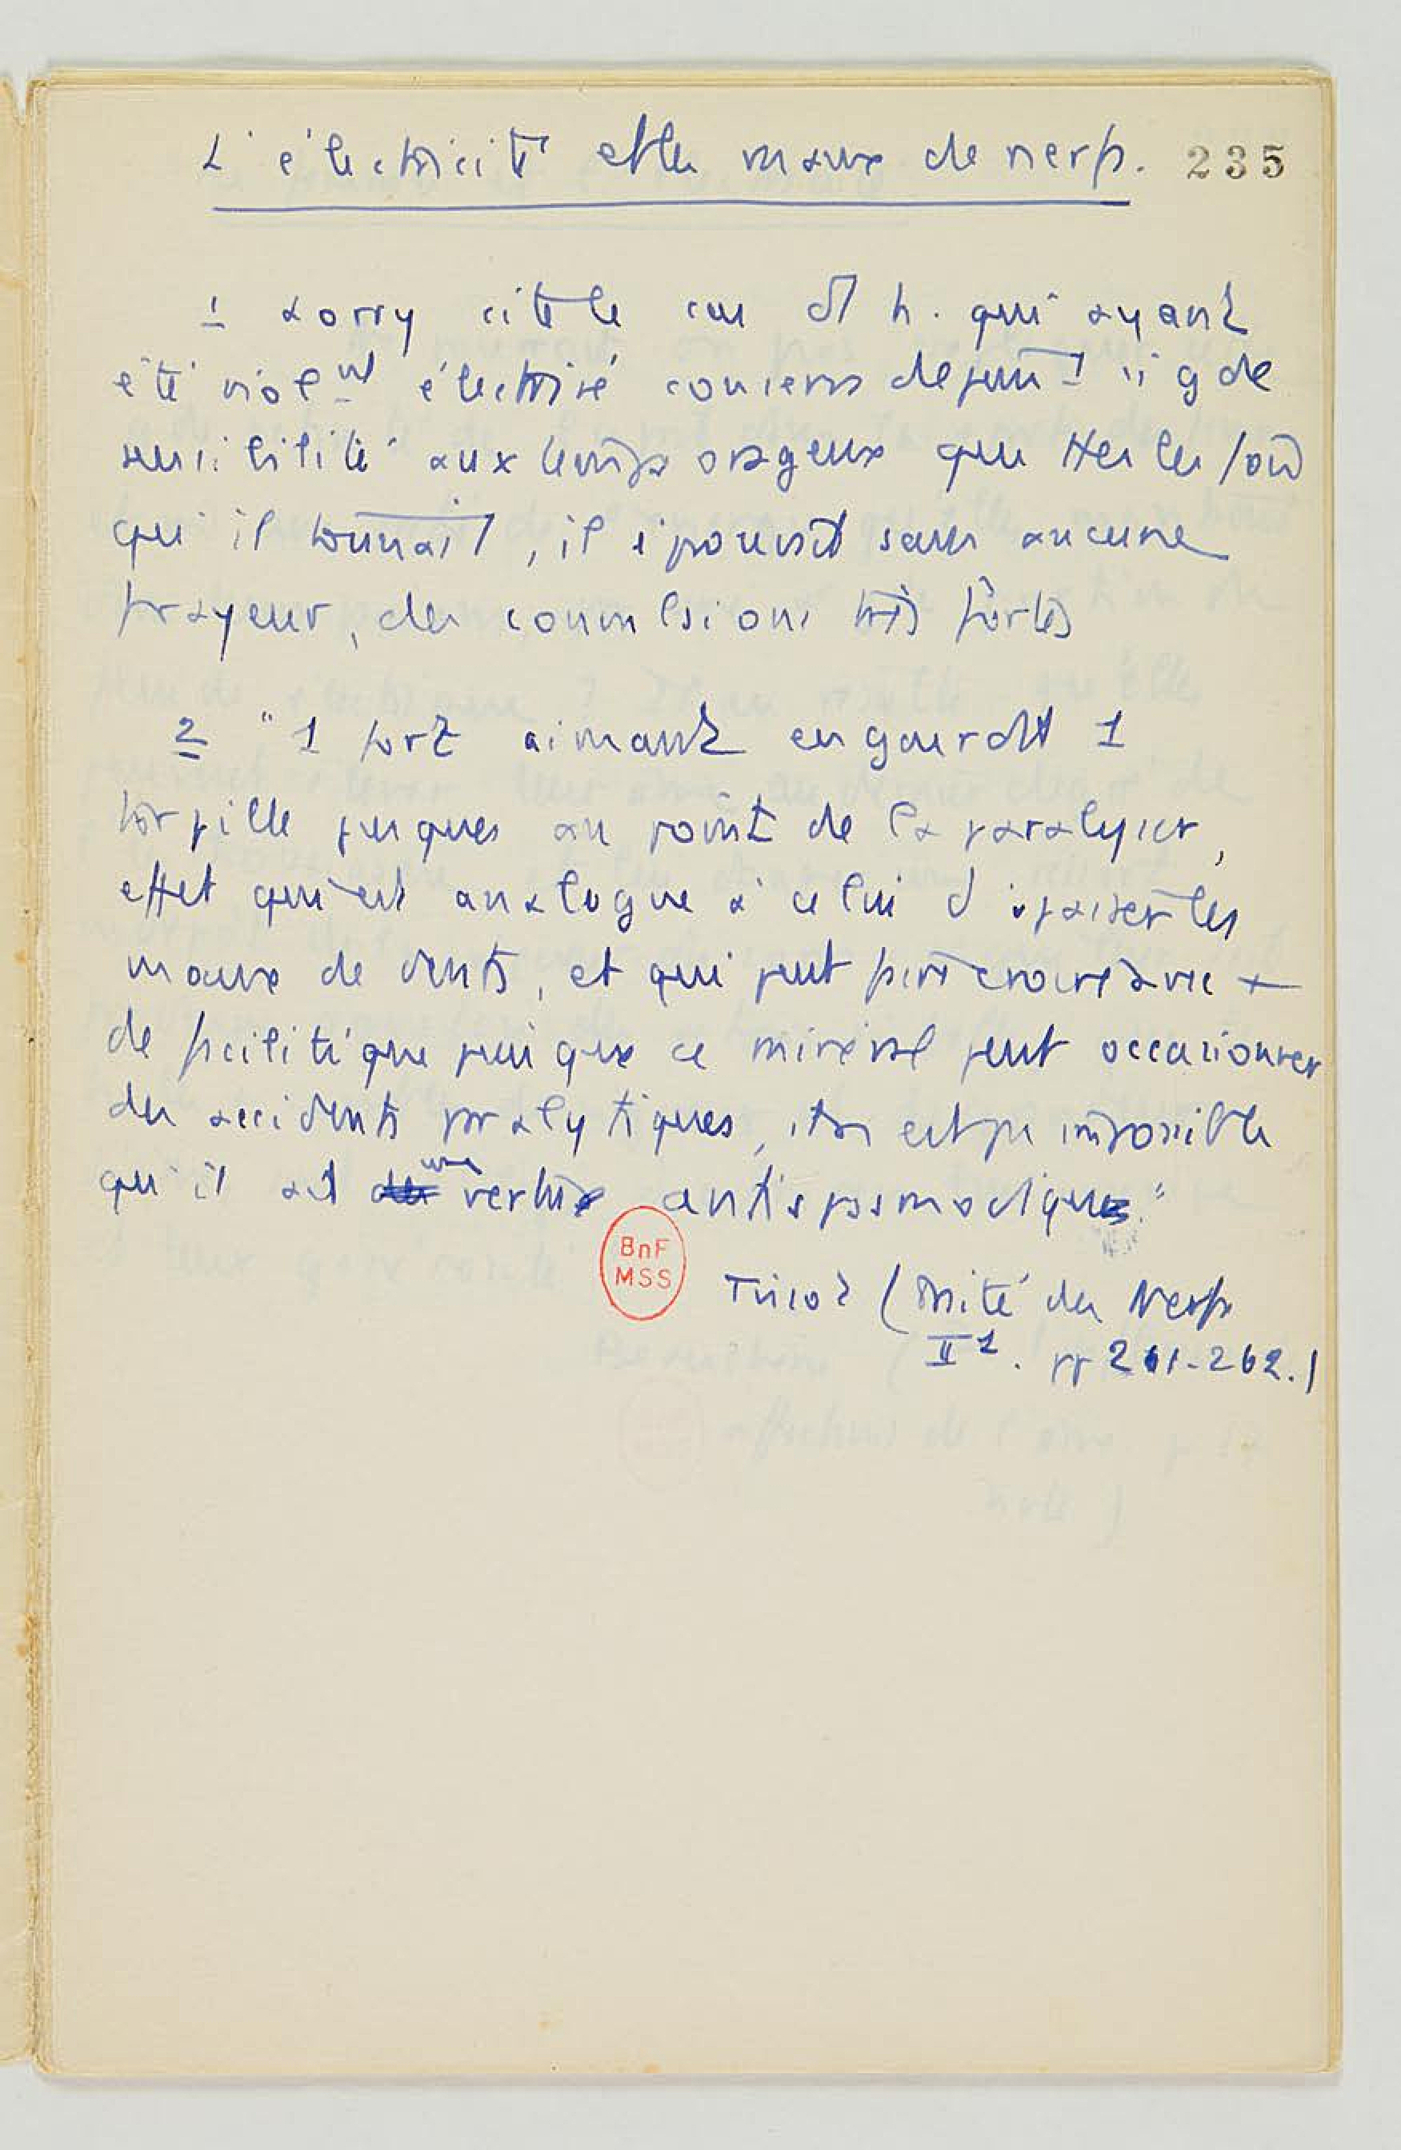 L'électricité et les maux de nerfs. 235
1 Lorry cite le cas d'1 h. qui ayant
été violnt électrisé conserva depuis 1 si gde
sensibilité aux temps orageux que ttes les fois
qu'il tonnait, il éprouvait sans aucune
frayeur, des convulsions très fortes
2 "1 fort aimant engourdit 1
torpille jusques au point de la paralyser,
effet qui est analogue à celui d'apaiser les
maux de dents, et qui peut faire croire avec +
de facilité que puisque ce minéral peut occasionner
des accidents paralytiques, il n'est pas impossible
qu'il ait une vertu antispasmodique."
BnF
MSS
Tissot (Traité des Nerfs
II 2. pp 261-262.)